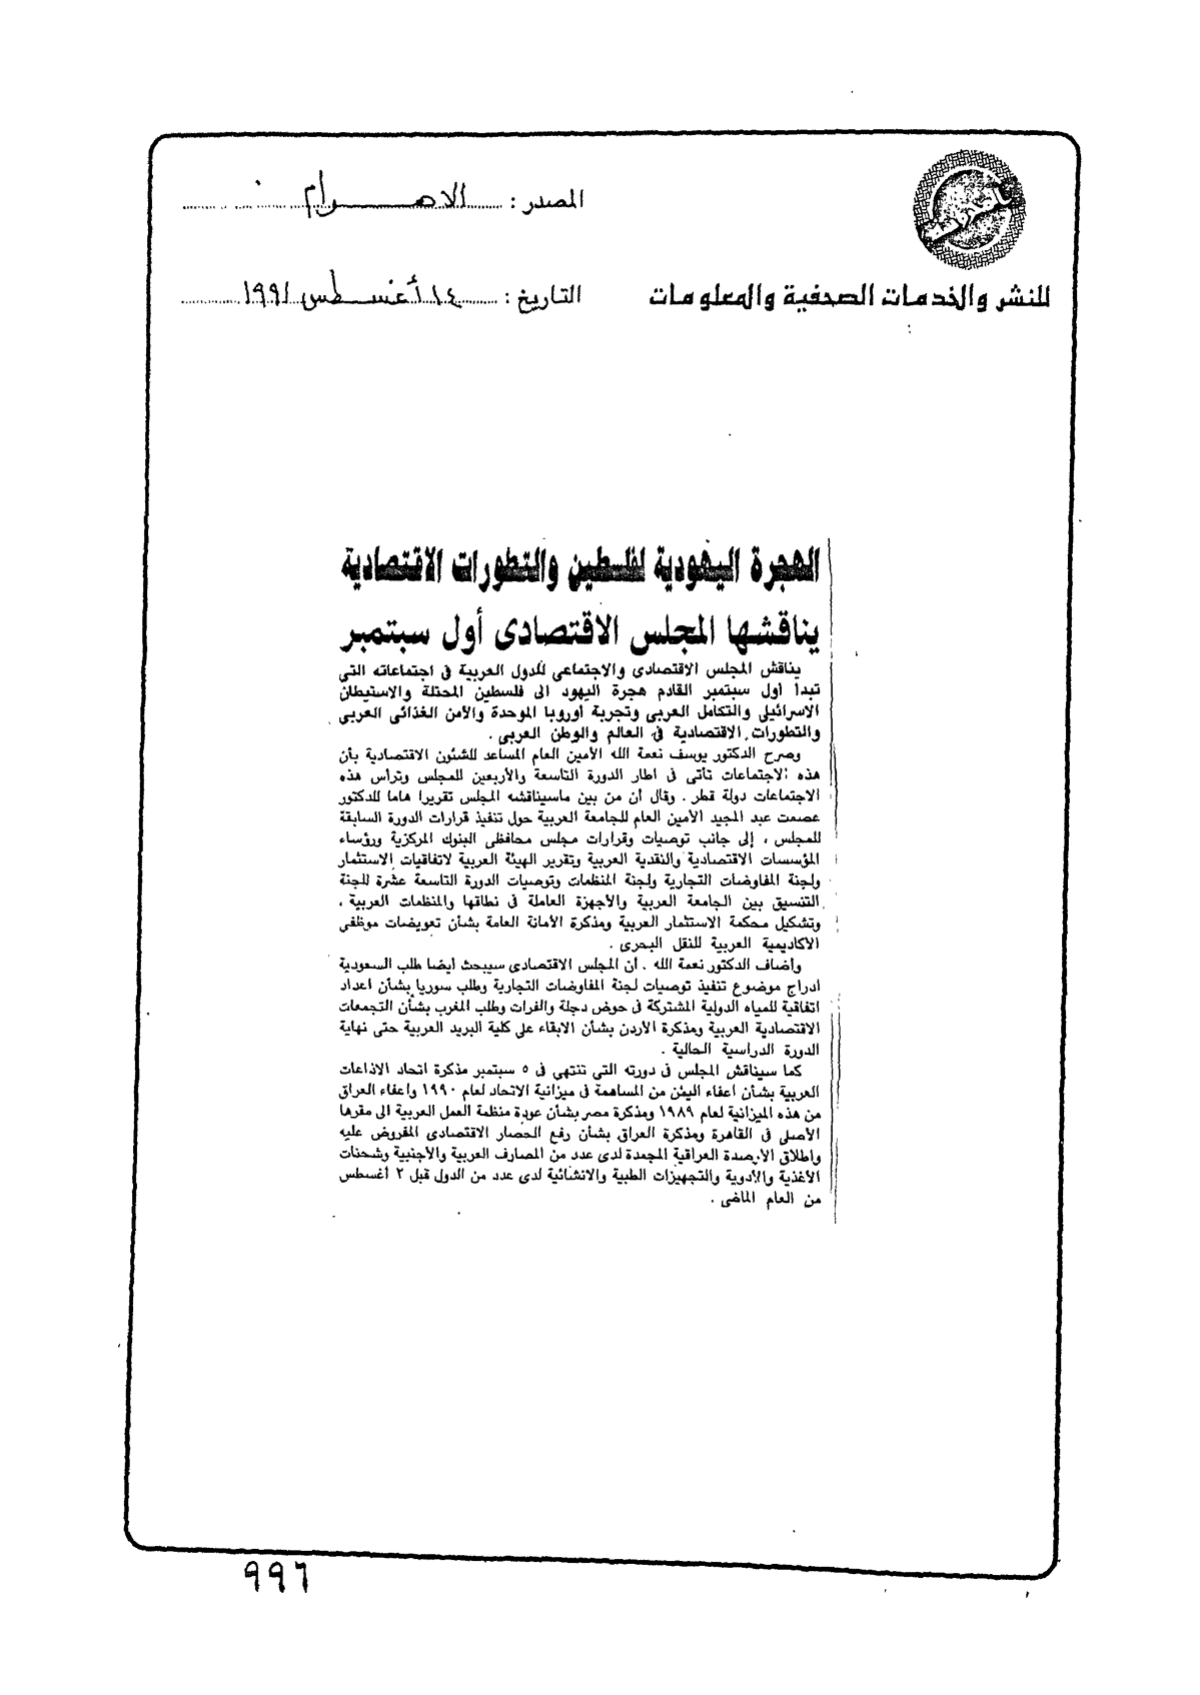 المصدر : الاهرام
للنشر والخدمات الصحفية والمعلومات
التاريخ : ١٤ أغسطس ١٩٩١
الهجرة اليهودية لفلسطين والتطورات الاقتصادية
يناقشها المجلس الاقتصادى أول سبتمبر
يناقش المجلس الاقتصادى والاجتماعى للدول العربية فى اجتماعاته التى
تبدأ أول سبتمبر القادم هجرة اليهود الى فلسطين المحتلة والاستيطان
الاسرائيلى والتكامل العربى وتجربة أوروبا الموحدة والأمن الغذائى العربى
والتطورات الاقتصادية فى العالم والوطن العربى .
وصرح الدكتور يوسف نعمة الله الأمين العام المساعد للشئون الاقتصادية بأن
هذه الاجتماعات تأتى فى اطار الدورة التاسعة والأربعين للمجلس وترأس هذه
الاجتماعات دولة قطر . وقال أن من بين ماسيناقشه المجلس تقريرا هاما للدكتور
عصمت عبد المجيد الأمين العام للجامعة العربية حول تنفيذ قرارات الدورة السابقة
للمجلس ، إلى جانب توصيات وقرارات مجلس محافظى البنوك المركزية ورؤساء
المؤسسات الاقتصادية والنقدية العربية وتقرير الهيئة العربية لاتفاقيات الاستثمار
ولجنة المفاوضات التجارية ولجنة المنظمات وتوصيات الدورة التاسعة عشرة للجنة
التنسيق بين الجامعة العربية والأجهزة العاملة فى نطاقها والمنظمات العربية ،
وتشكيل محكمة الاستثمار العربية ومذكرة الأمانة العامة بشأن تعويضات موظفى
الأكاديمية العربية للنقل البحرى .
وأضاف الدكتور نعمة الله . أن المجلس الاقتصادى سيبحث ايضا طلب السعودية
ادراج موضوع تنفيذ توصيات لجنة المفاوضات التجارية وطلب سوريا بشأن اعداد
اتفاقية للمياه الدولية المشتركة فى حوض دجلة والفرات وطلب المغرب بشأن التجمعات
الاقتصادية العربية ومذكرة الأردن بشأن الابقاء على كلية البريد العربية حتى نهاية
الدورة الدراسية الحالية .
كما سيناقش المجلس فى دورته التى تنتهى فى ٥ سبتمبر مذكرة اتحاد الاذاعات
العربية بشأن اعفاء اليمن من المساهمة فى ميزانية الاتحاد لعام ١٩٩٠ واعفاء العراق
من هذه الميزانية لعام ١٩٨٩ ومذكرة مصر بشأن عودة منظمة العمل العربية الى مقرها
الأصلى فى القاهرة ومذكرة العراق بشأن رفع الحصار الاقتصادى المفروض عليه
واطلاق الأرصدة العراقية المجمدة لدى عدد من المصارف العربية والأجنبية وشحنات
الأغذية والأدوية والتجهيزات الطبية والانشائية لدى عدد من الدول قبل ٢ أغسطس
من العام الماضى .
٩٩٦